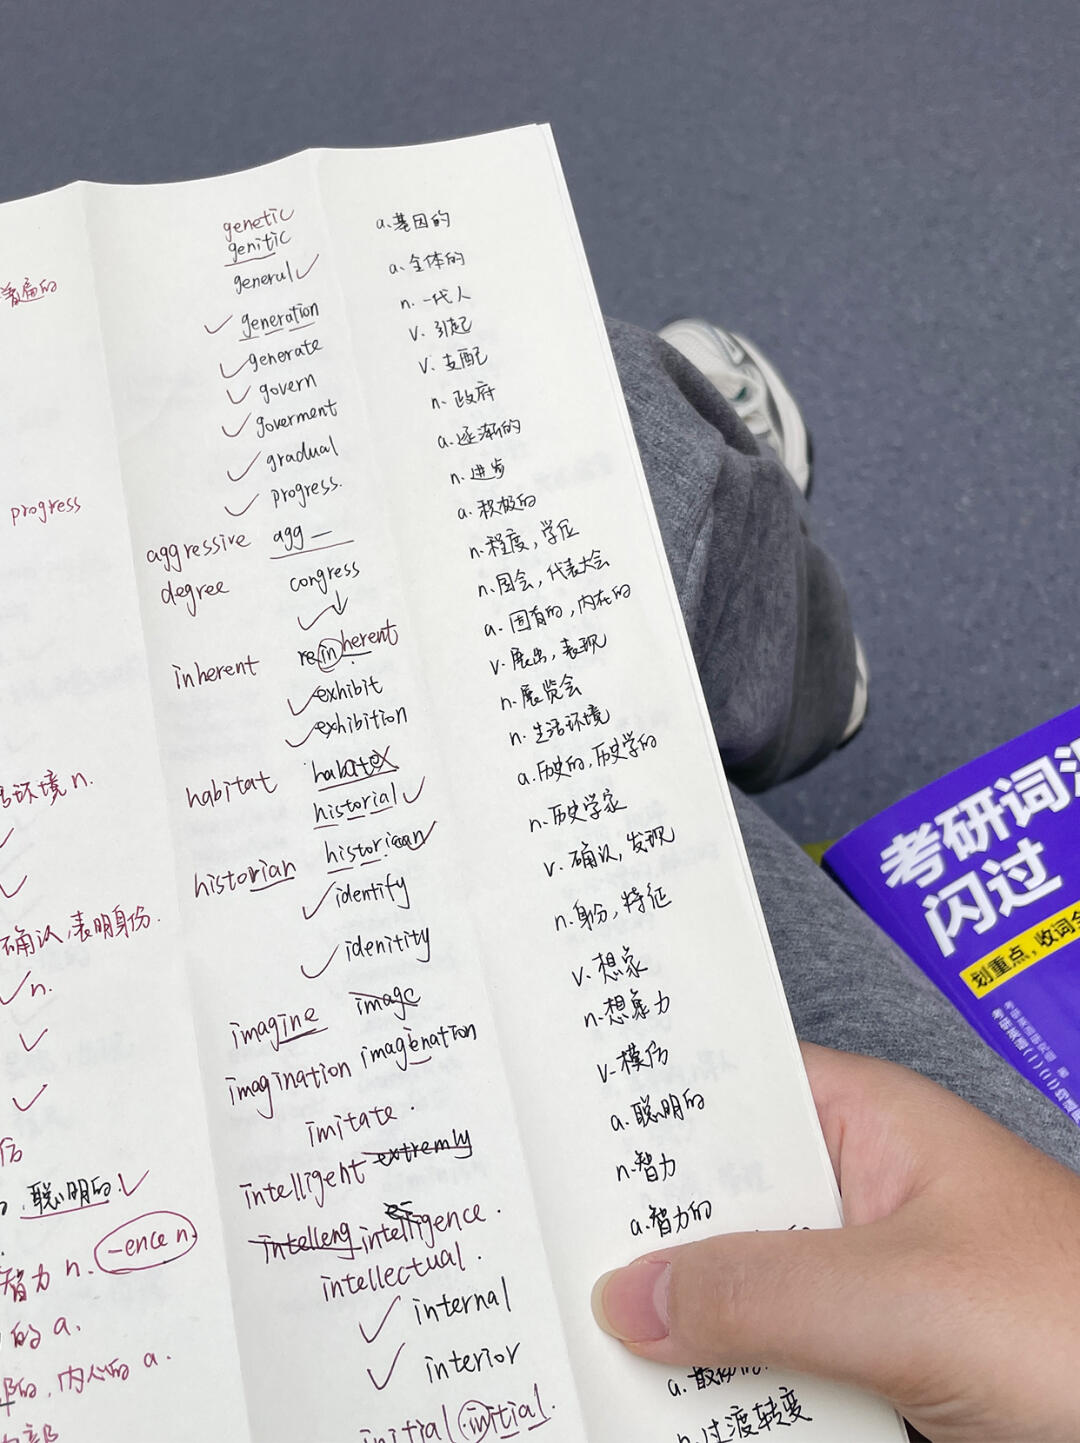 genetic
genitic a.基因的
普遍的 generul a.全体的
generation n.一代人
generate v.引起
govern v.支配
goverment n.政府
gradual a.逐渐的
progress progress. n.进步
aggressive agg— a.积极的
degree n.程度，学位
congress n.国会，代表大会
inherent reinherent a.固有的，内在的
exhibit v.展出，表现
exhibition n.展览会
环境 n. habitat habitex n.生活环境
historial a.历史的，历史学的
historian historican n.历史学家
确认，表明身份. identify v.确认，发现
n. idenitity n.身份，特征
imagine image v.想象
imagination imagenation n.想象力
imitate. v.模仿
聪明的. intelligent extremly a.聪明的
智力 n. -ence n. intelleng intelligence. n.智力
的 a. intellectual. a.智力的
的，内心的 a. internal
部 interior
initial initial. a.
n.过渡转变
考研词汇
闪过
划重点，收词全